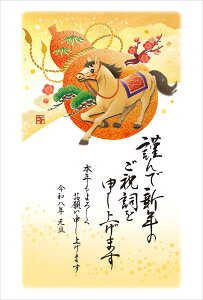 謹んで新年の
ご祝詞を
申し上げます
本年もよろしく
お願い申し上げます
令和八年 元旦